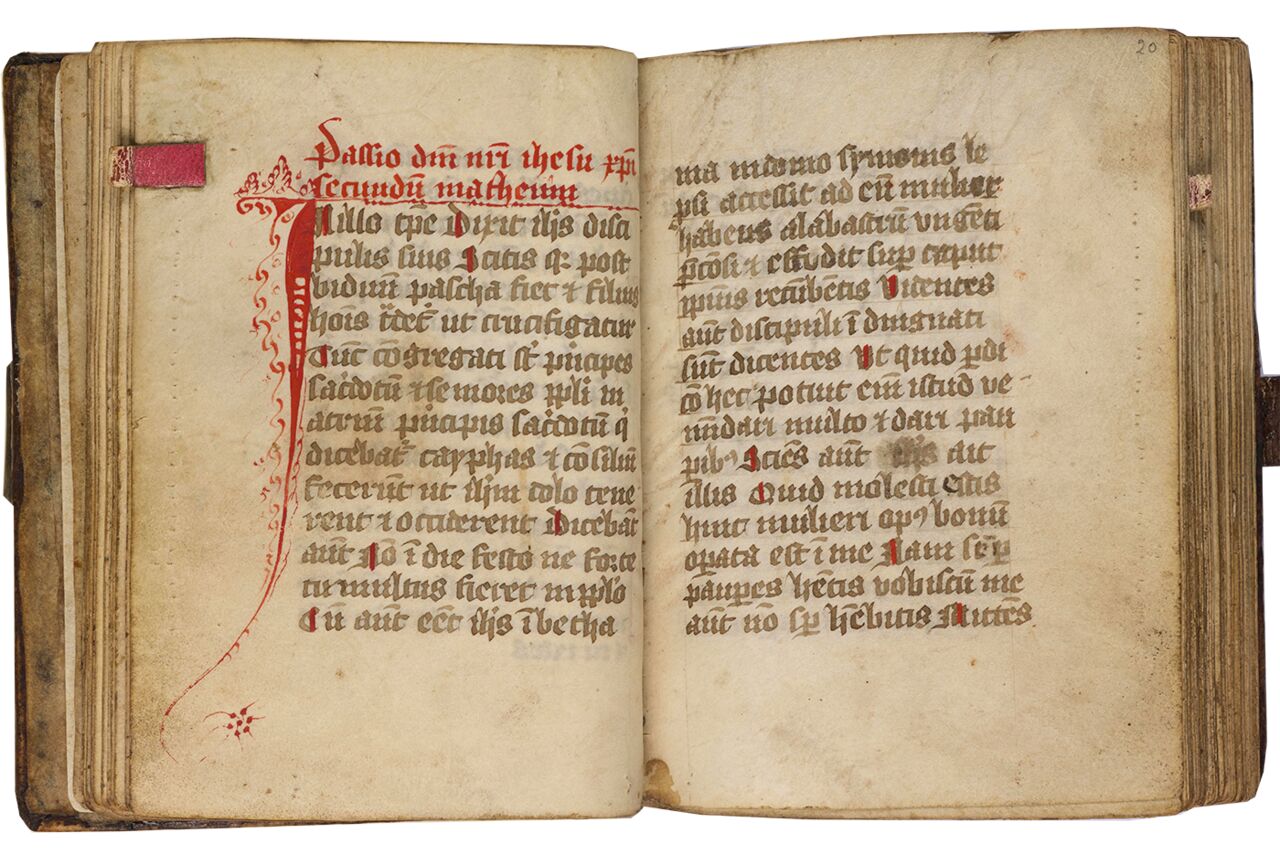 Passio dni nri ihesu xpi
secundum matheum
In illo tpe Dixit ihs disci
pulis suis Scitis qr post
biduum pascha fiet et filius
hois tdet ut crucifigatur
Tunc congregati st pncipes
sacdotum et seniores ppli in
atrium pncipis sacdotum q
dicebat cayphas et consilium
fecerunt ut ihm dolo tene
rent et occiderent Dicebat
aut No in die festo ne forte
tumultus fieret in pplo
Cum aut eet ihs in betha
20
nia in domo symonis le
psi accessit ad eum mulier
habens alabastrum ungenti
pcosi et effudit sup caput
ipius recumbentis Videntes
aut discipuli indignati
sunt dicentes Ut quid pdi
co hec potuit em istud ve
nundari multo et dari pau
pibꝰ Sciens aut ihs ait
illis Quid molesti estis
huic mulieri opꝰ bonum
operata est in me Nam semp
pauperes hetis vobiscum me
aut no sp hebitis Mittens